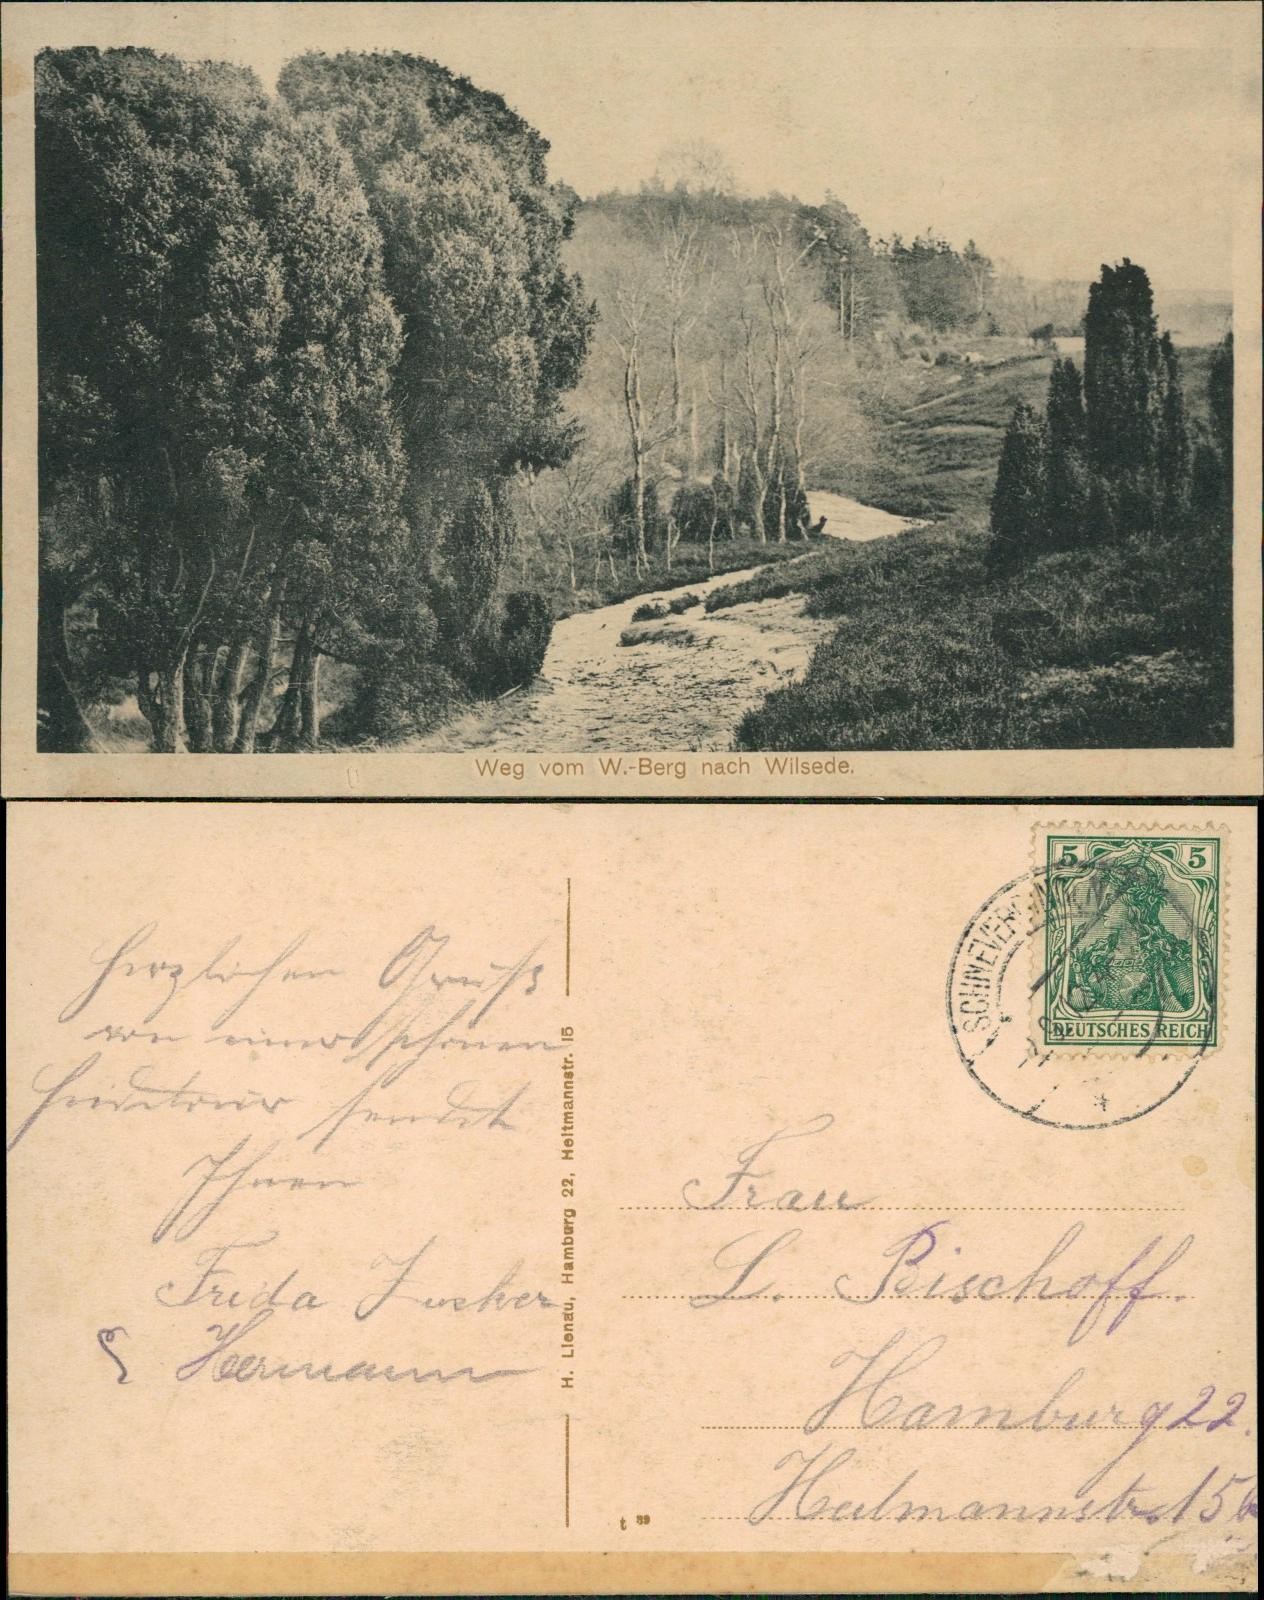 Weg vom W.-Berg nach Wilsede.
Herzlichen Gruß
von einer schönen
Heidetour sendet
Ihnen
Frida Zucker
Hermann
H. Lienau, Hamburg 22, Heitmannstr. 15
5 5
DEUTSCHES REICH
SCHNEVERDINGEN
Frau
L. Bischoff.
Hamburg 22.
Heitmannstr. 15
t 39